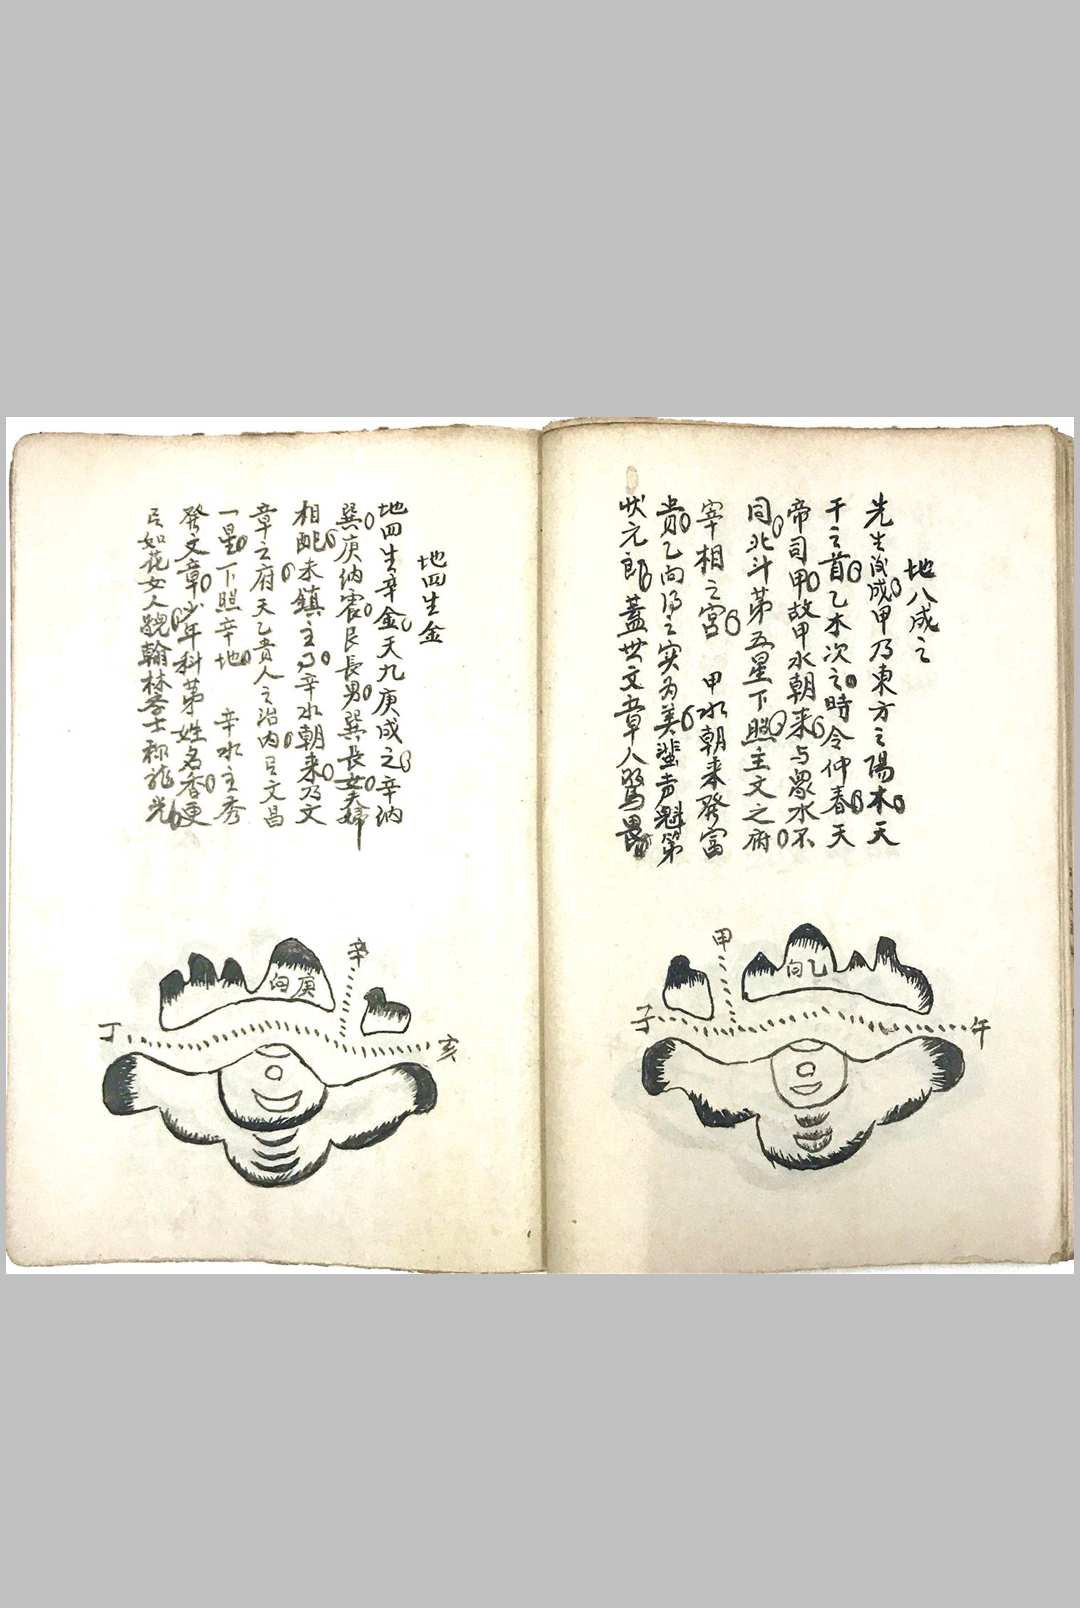 地八成之
先生成甲乃東方之陽木天
干之首乙木次之時令仲春天
帝司甲故甲水朝来与衆水不
同北斗第五星下照主文之府
宰相之宮 甲水朝来發富
貴乙向得之实为美蜚声魁第
状元郎蓋世文章人驚畏
甲
乙向
子
午
地四生金
地四生辛金天九庚成之辛納
巽庚納震艮長男巽長女夫婦
相配未鎮主乃辛水朝来乃文
章之府天乙貴人之治内有文昌
一星下照辛地 辛水主秀
發文章少年科第姓名香更
如花女人翰林学士龍光
辛
庚向
丁
亥